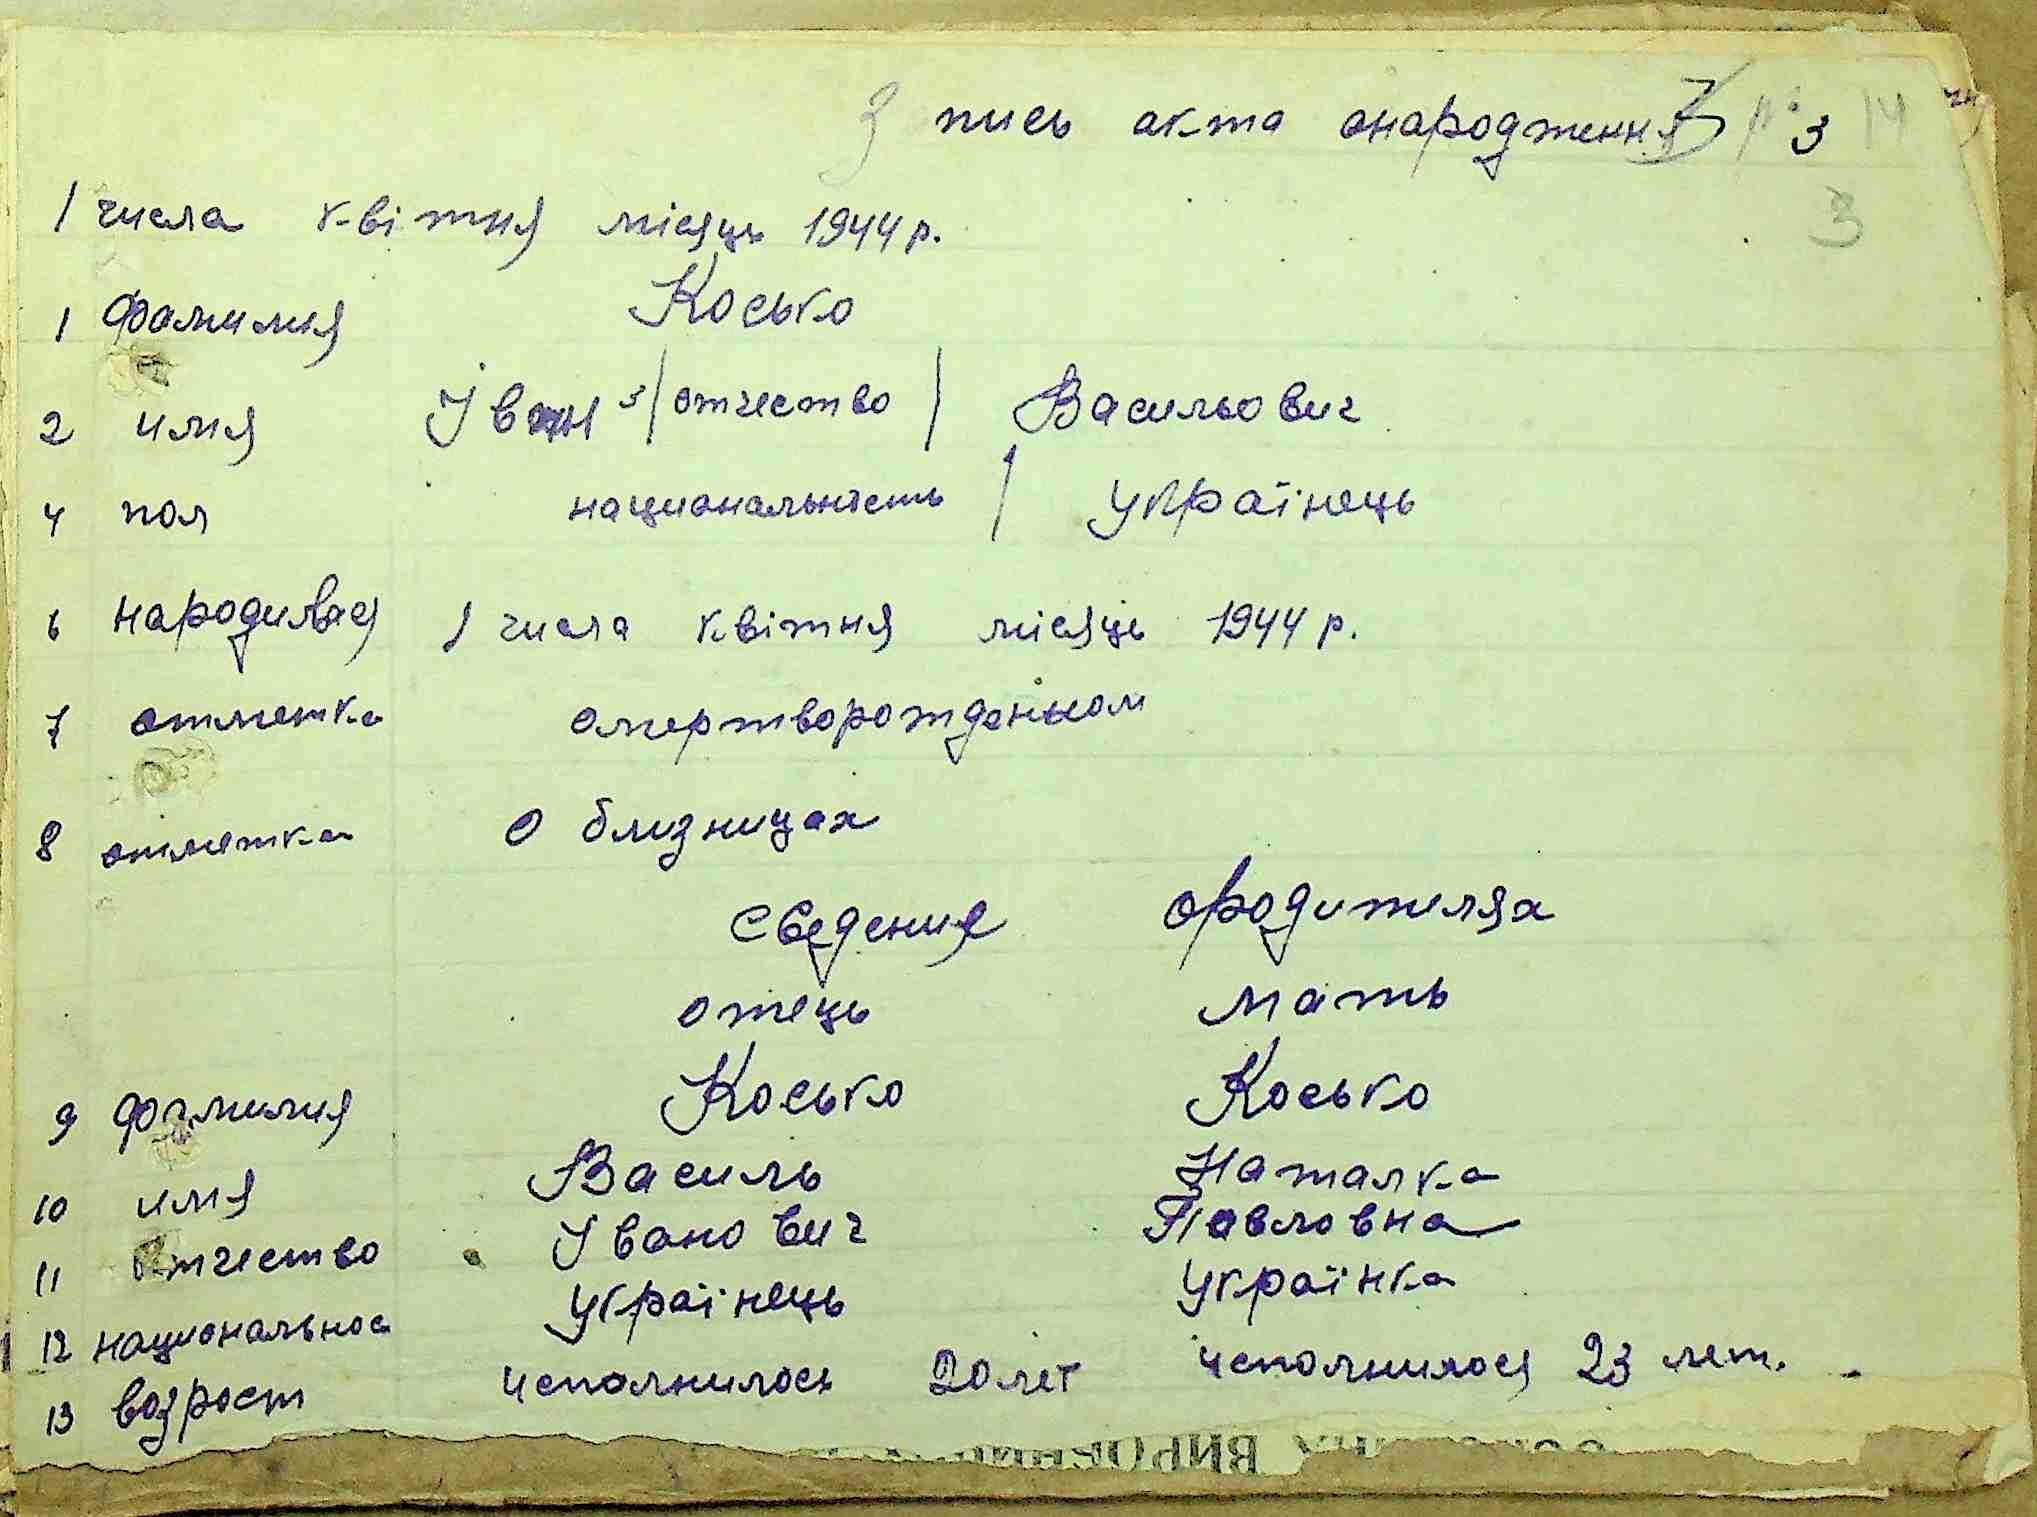 З пись акта онародження № 3 14
3
1 числа квітня місяць 1944 р.
1 фамилия Косько
2 имя Іван 3 / отчество / Васильович
4 пол национальность / українець
6 народився 1 числа квітня місяць 1944 р.
7 отметка омертворожденном
8 отметка о близницах
сведение ородителях
отець мать
9 фамилия Косько Косько
10 имя Василь Наталка
11 отчество Іванович Павловна
12 национальнос українець українка
13 возрост исполнилось 20 лет исполнилося 23 лет.